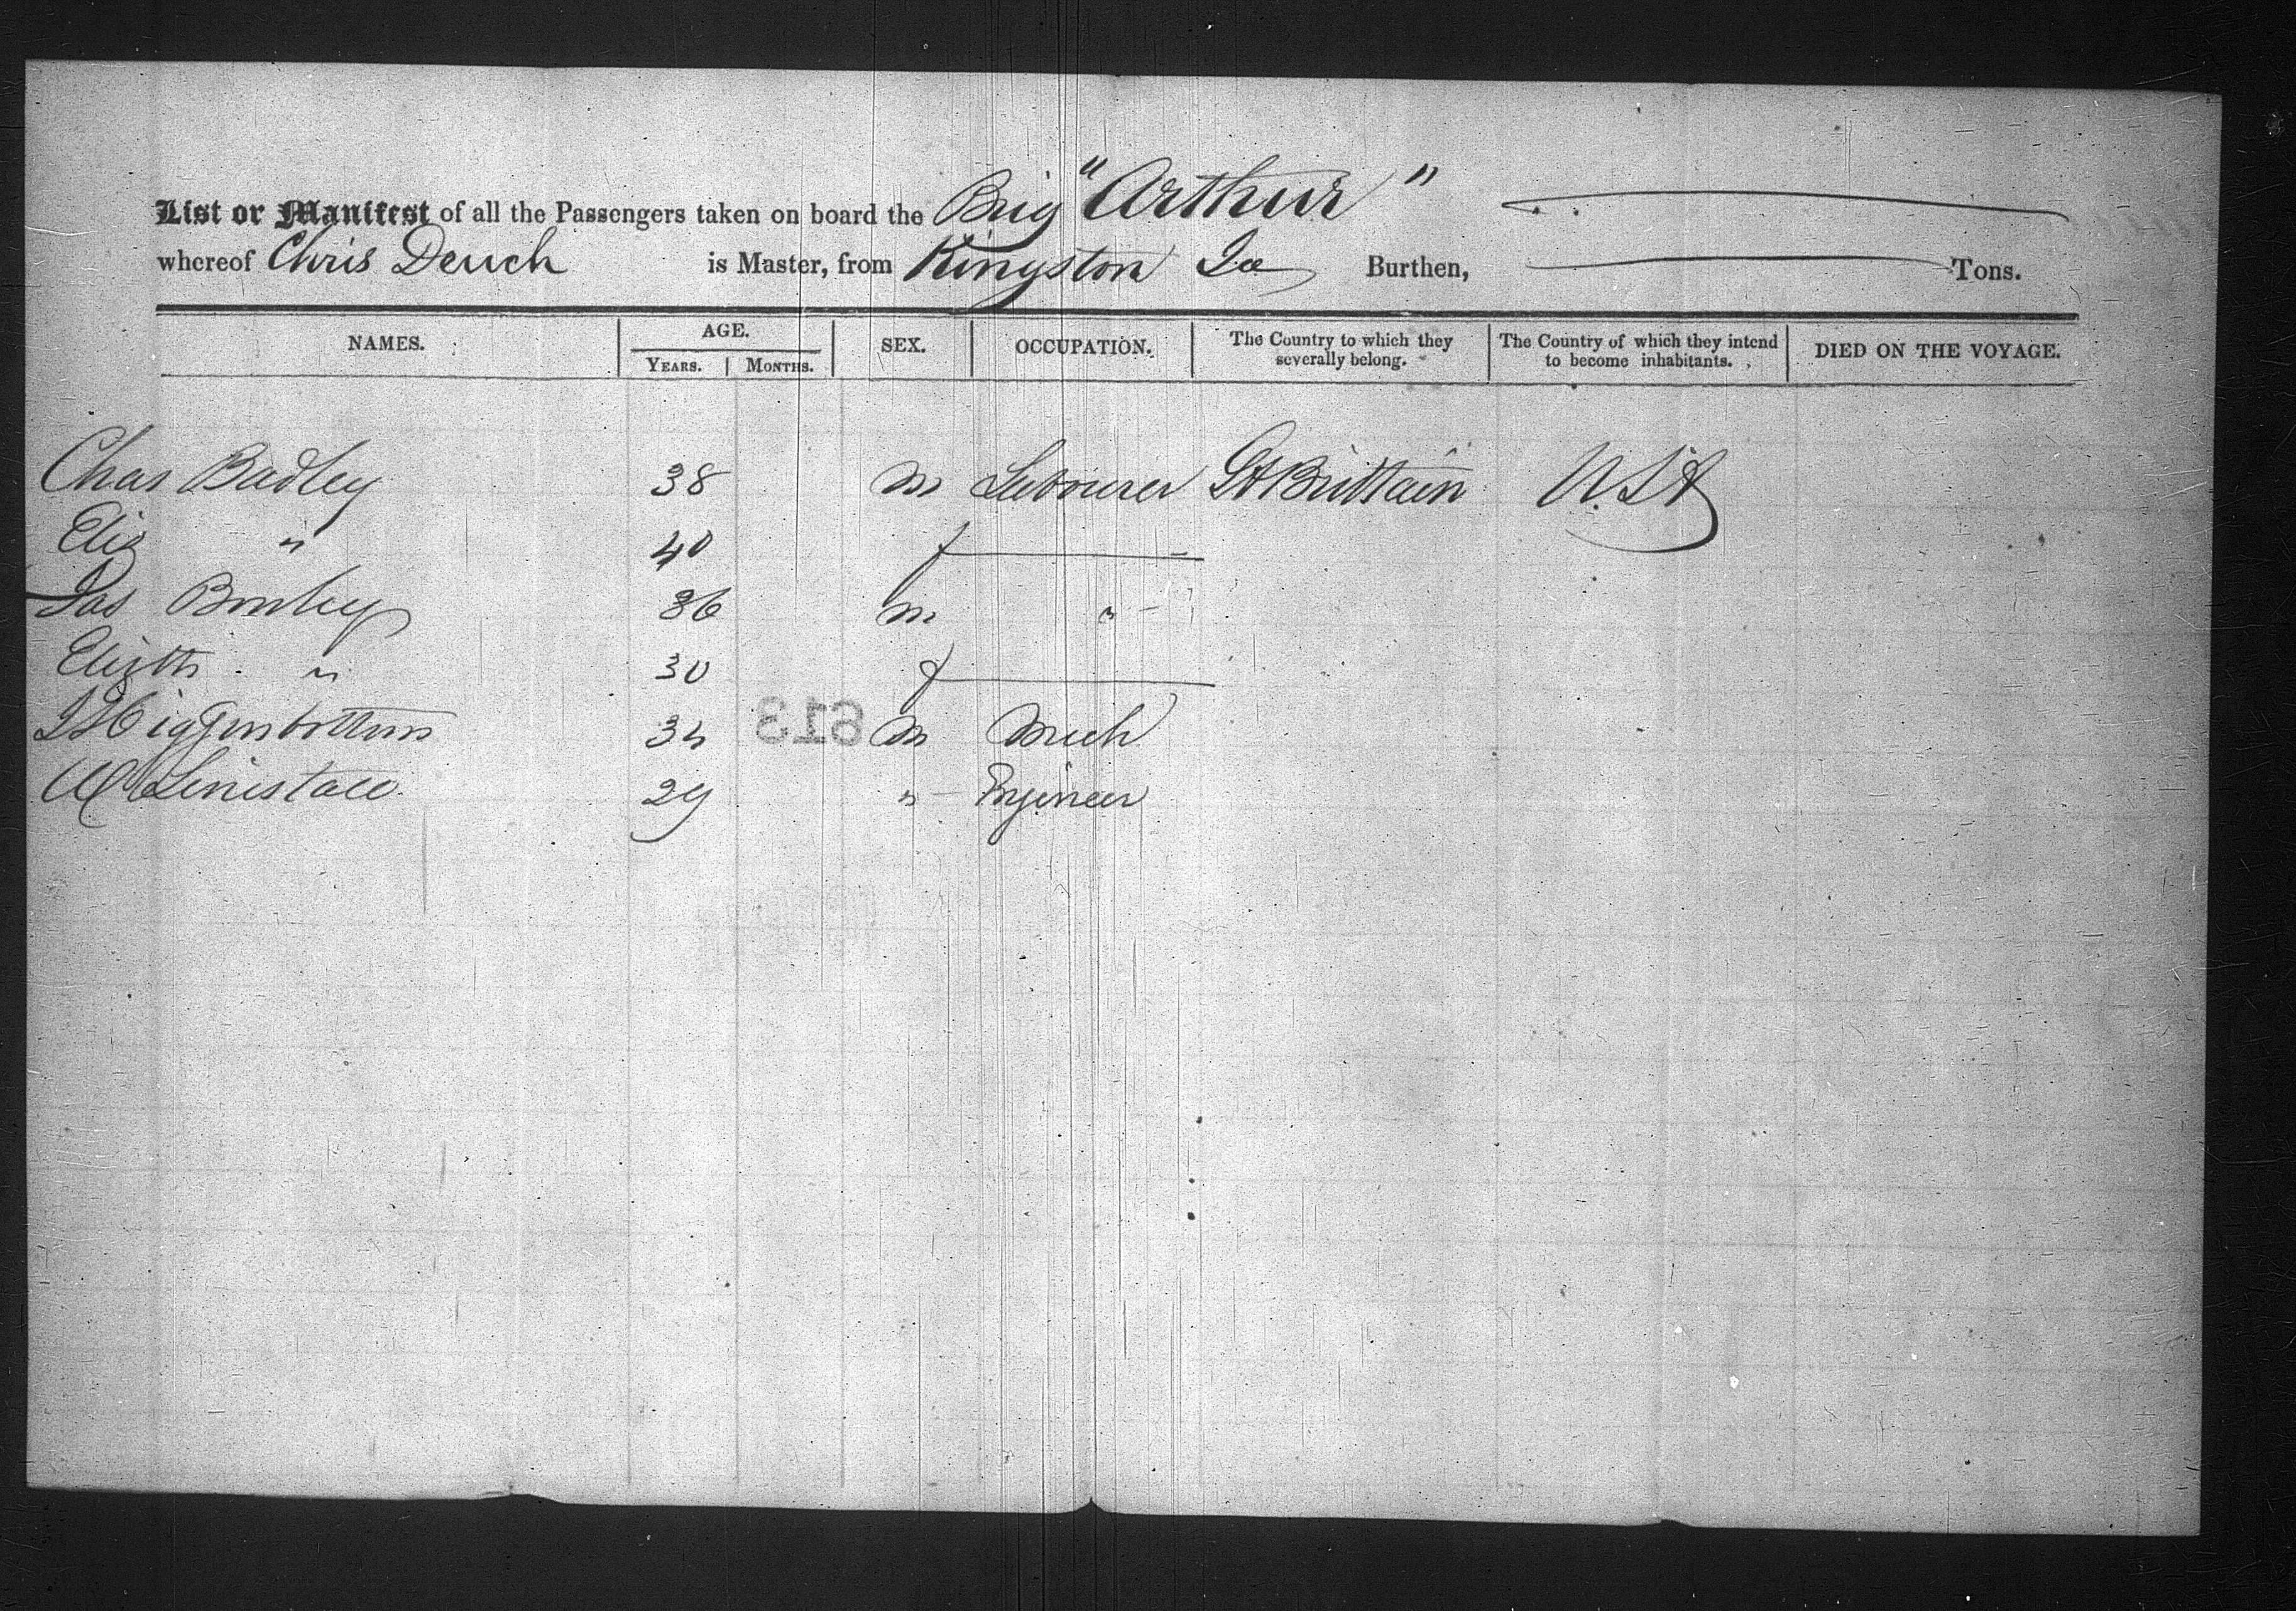 List or Manifest of all the Passengers taken on board the Brig "Arthur"
whereof Chris Deuch is Master, from Kingston Ja Burthen, Tons.
NAMES. AGE. YEARS. MONTHS. SEX. OCCUPATION. The Country to which they severally belong. The Country of which they intend to become inhabitants. DIED ON THE VOYAGE.
Chas Badley 38 m Labourer Gt Brittain U.S.A
Eliz " 40 f
Jas 36 m "
Elizth " 30 f
J Higginbottom 34 m Mech
W 29 " Engineer
613